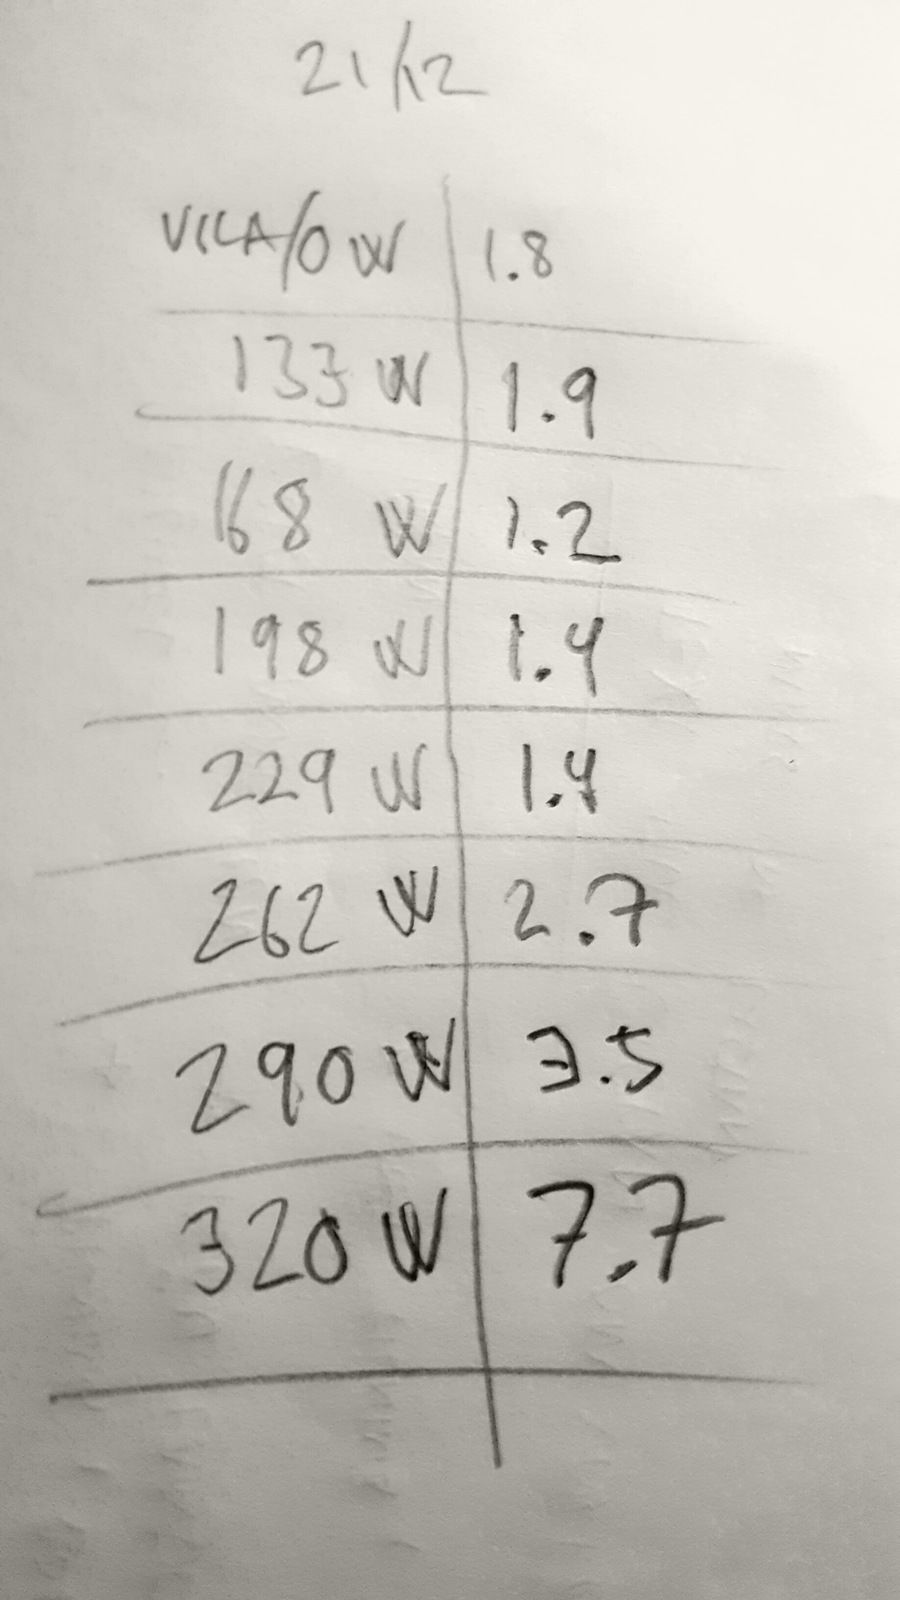 21/12
VILA/0 W 1.8
133 W 1.9
168 W 1.2
198 W 1.4
229 W 1.4
262 W 2.7
290 W 3.5
320 W 7.7